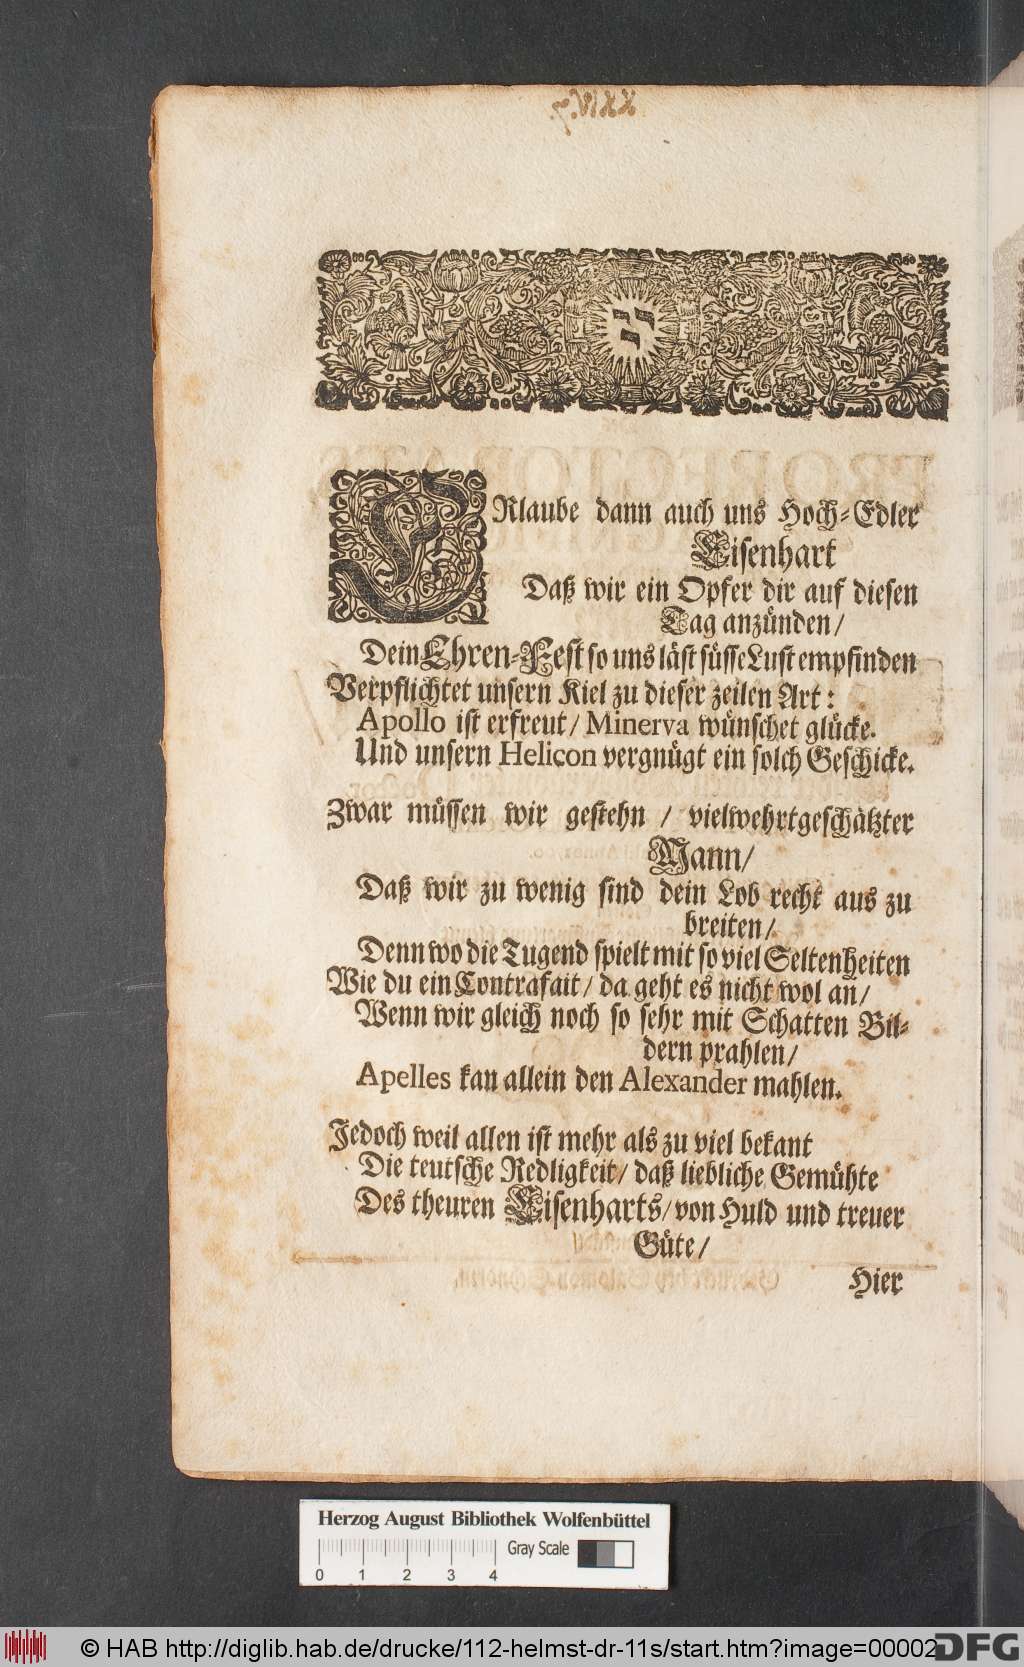 ERlaube dann auch uns Hoch-Edler
Eisenhart
Daß wir ein Opfer dir auf diesen
Tag anzünden/
Dein Ehren-Fest so uns läst süsse Lust empfinden
Verpflichtet unsern Kiel zu dieser zeilen Art:
Apollo ist erfreut/ Minerva wünschet glücke.
Und unsern Helicon vergnügt ein solch Geschicke.
Zwar müssen wir gestehn / vielwehrtgeschätzter
Mann/
Daß wir zu wenig sind dein Lob recht aus zu
breiten/
Denn wo die Tugend spielt mit so viel Seltenheiten
Wie du ein Contrafait/ da geht es nicht wol an/
Wenn wir gleich noch so sehr mit Schatten Bil-
dern prahlen/
Apelles kan allein den Alexander mahlen.
Jedoch weil allen ist mehr als zu viel bekant
Die teutsche Redligkeit/ daß liebliche Gemühte
Des theuren Eisenharts/ von Huld und treuer
Güte/
Hier
Herzog August Bibliothek Wolfenbüttel
Gray Scale
0 1 2 3 4
© HAB http://diglib.hab.de/drucke/112-helmst-dr-11s/start.htm?image=00002
DFG